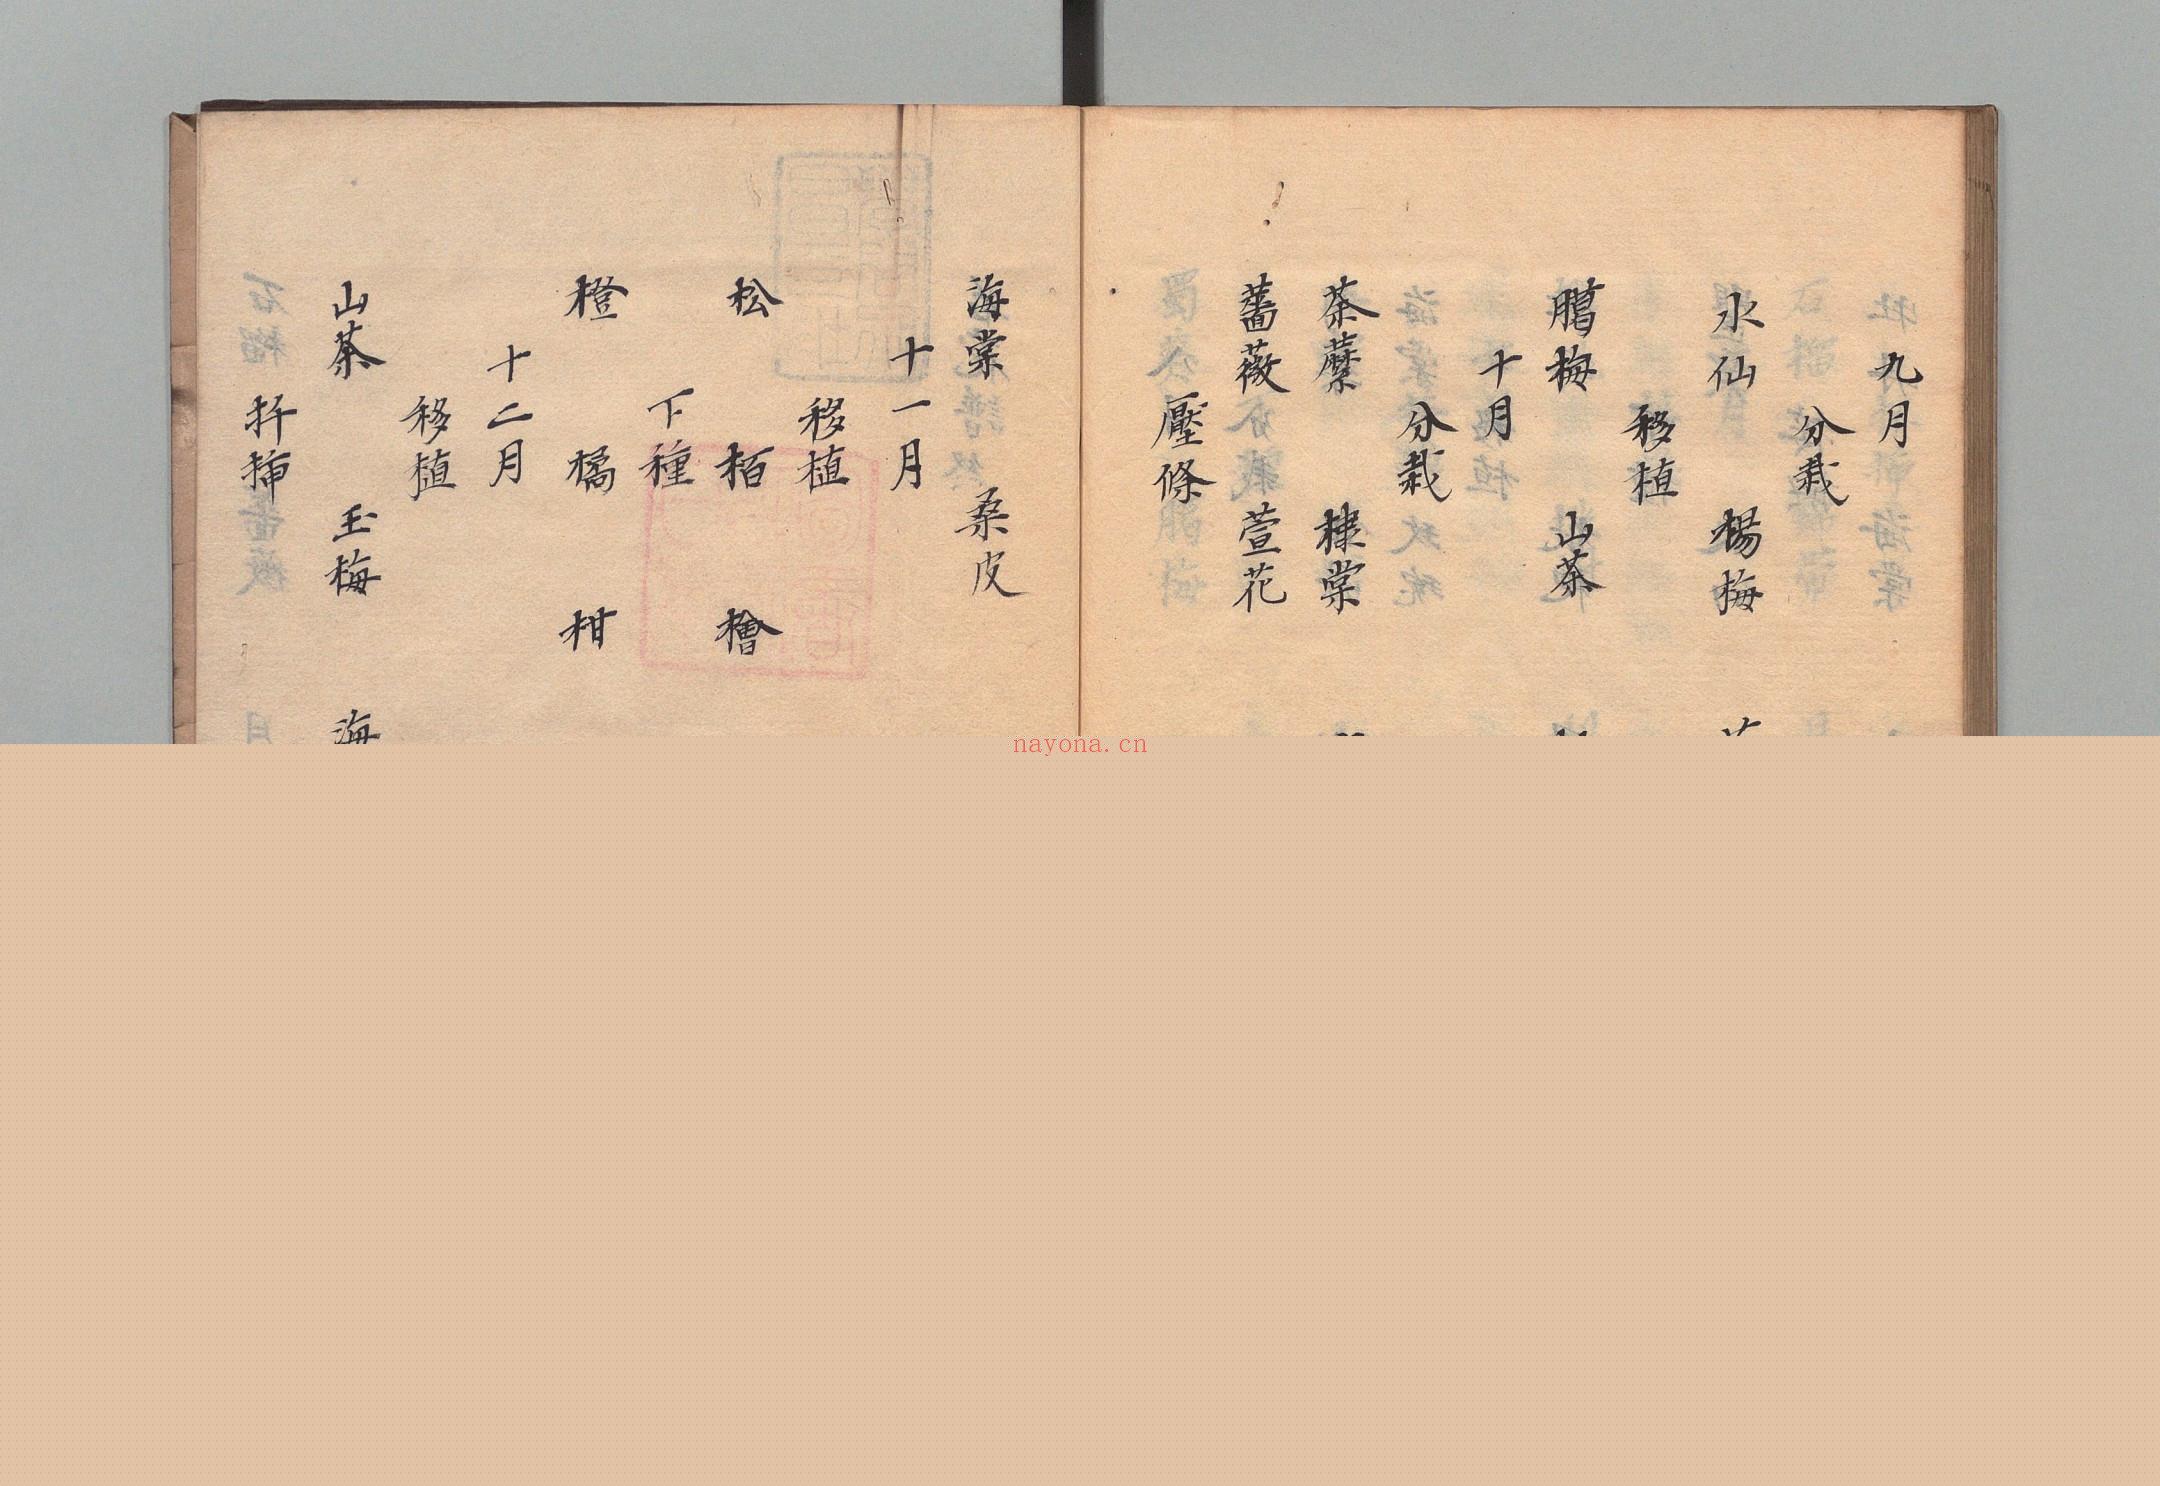 九月
分栽
水仙 楊梅
移植
臈梅 山茶
十月
分栽
茶蘼 棣棠
薔薇 萱花
壓條
海棠 桑皮
十一月
移植
松 栢 檜
下種
橙 橘 柑
十二月
移植
山茶 玉梅 海
扦挿
nayona.cn